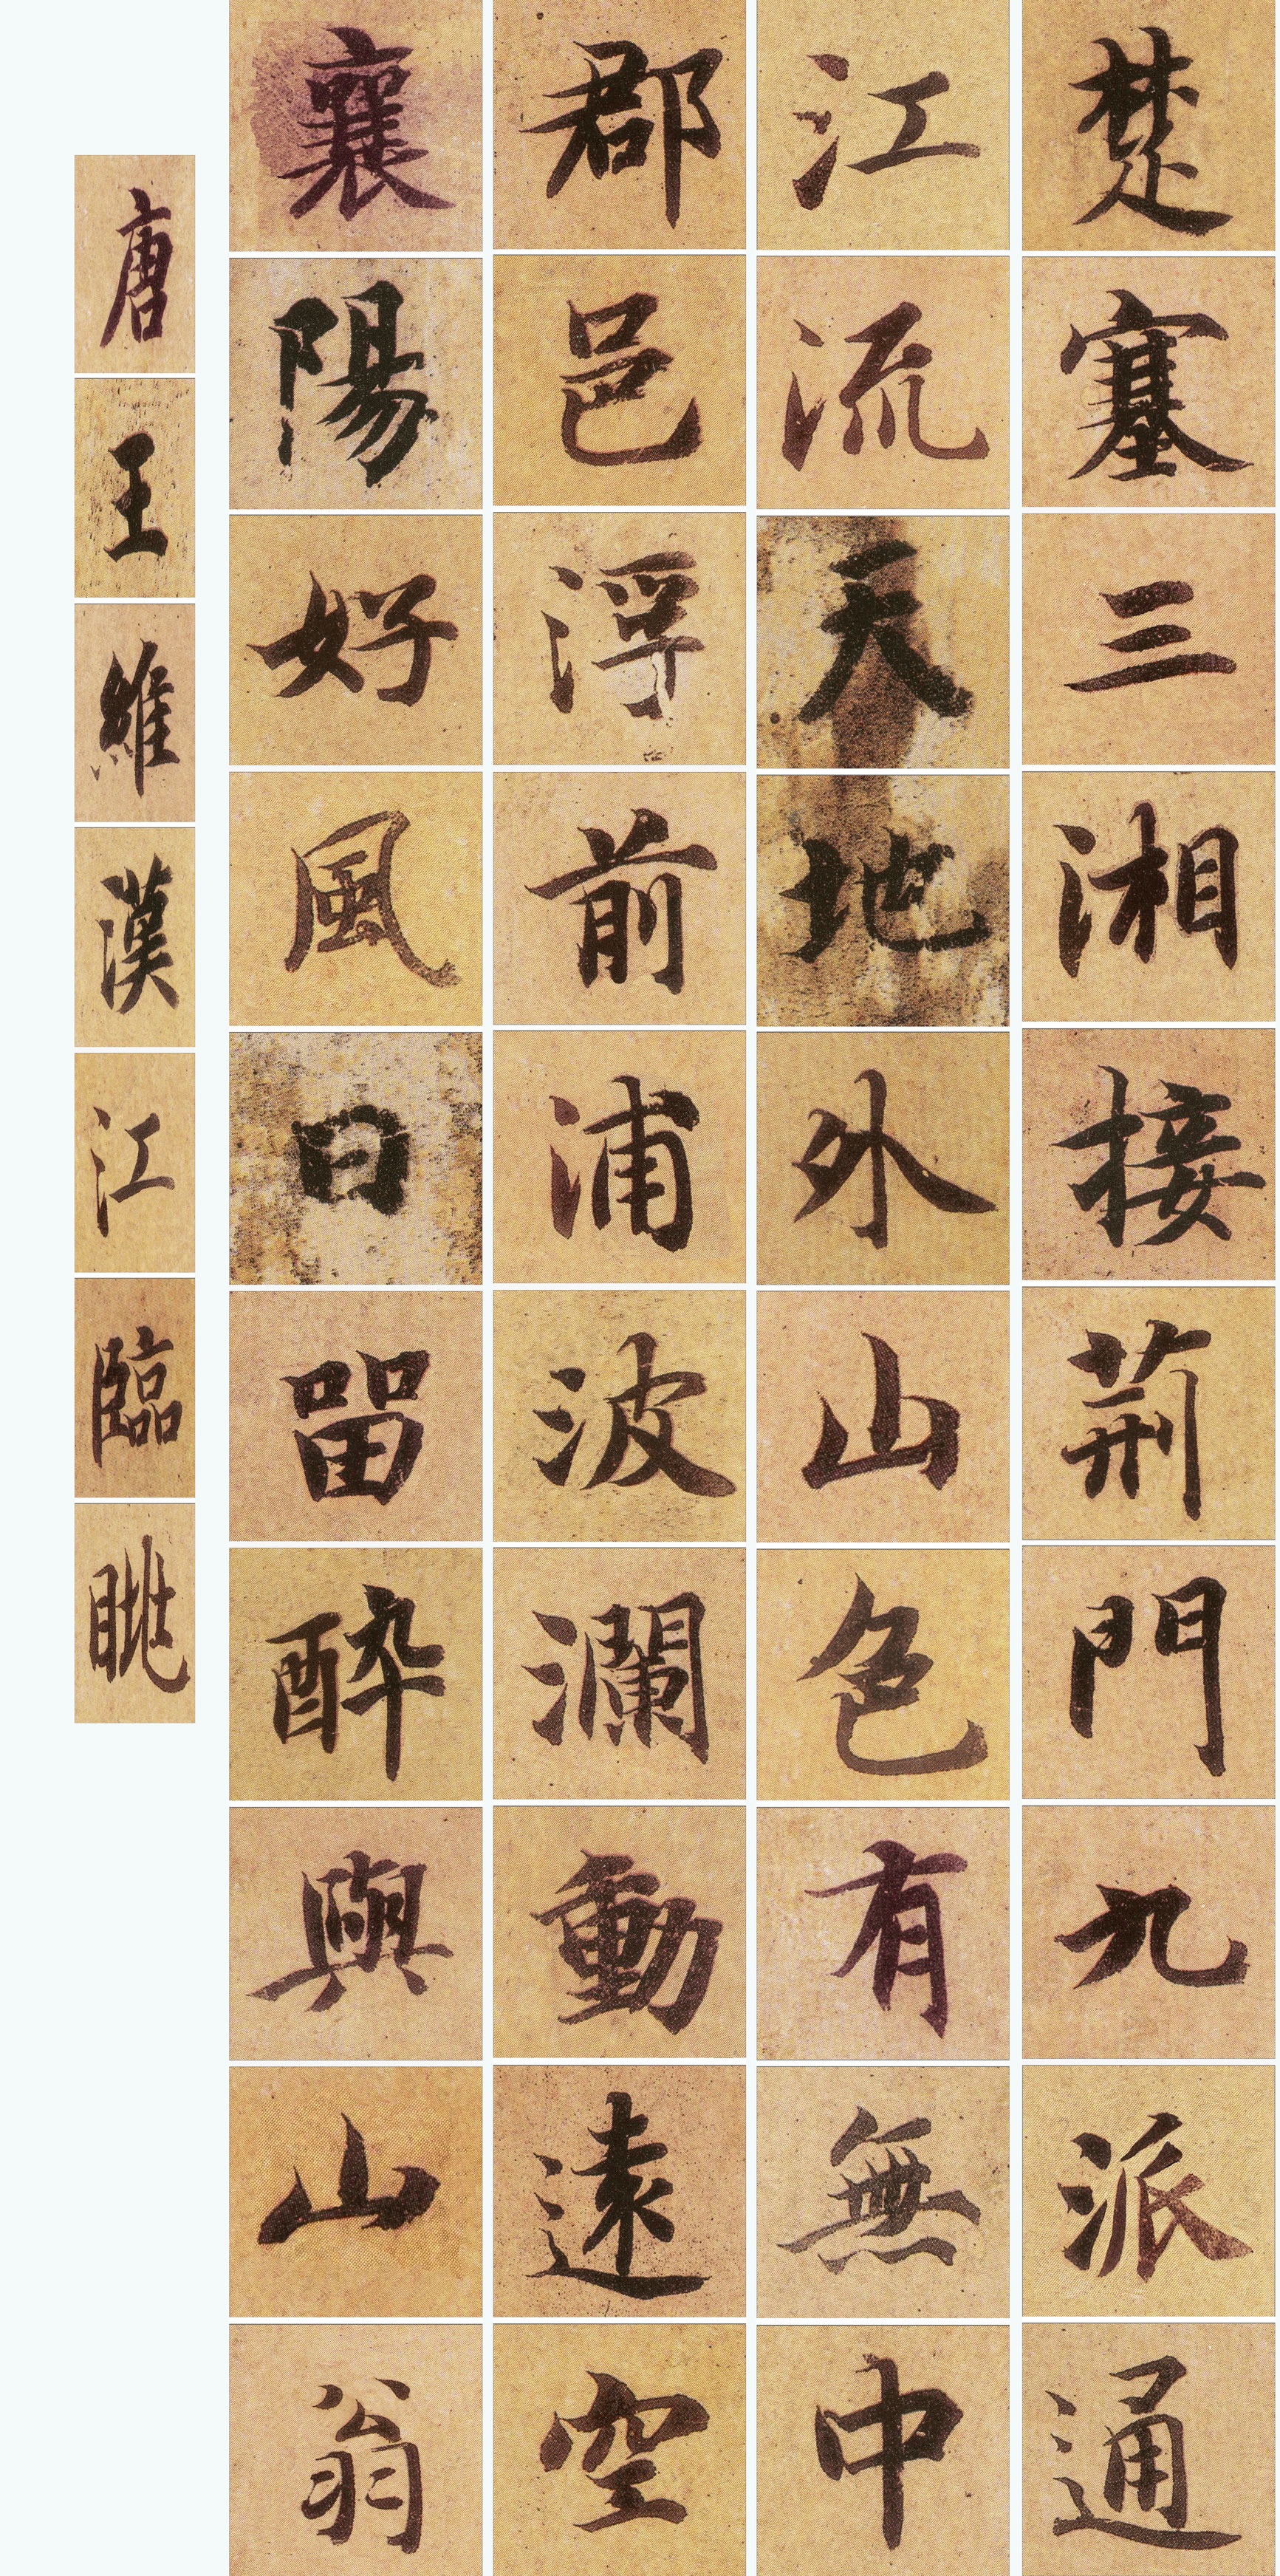 楚塞三湘接荊門九派通
江流天地外山色有無中
郡邑浮前浦波瀾動遠空
襄陽好風日留醉與山翁
唐王維漢江臨眺